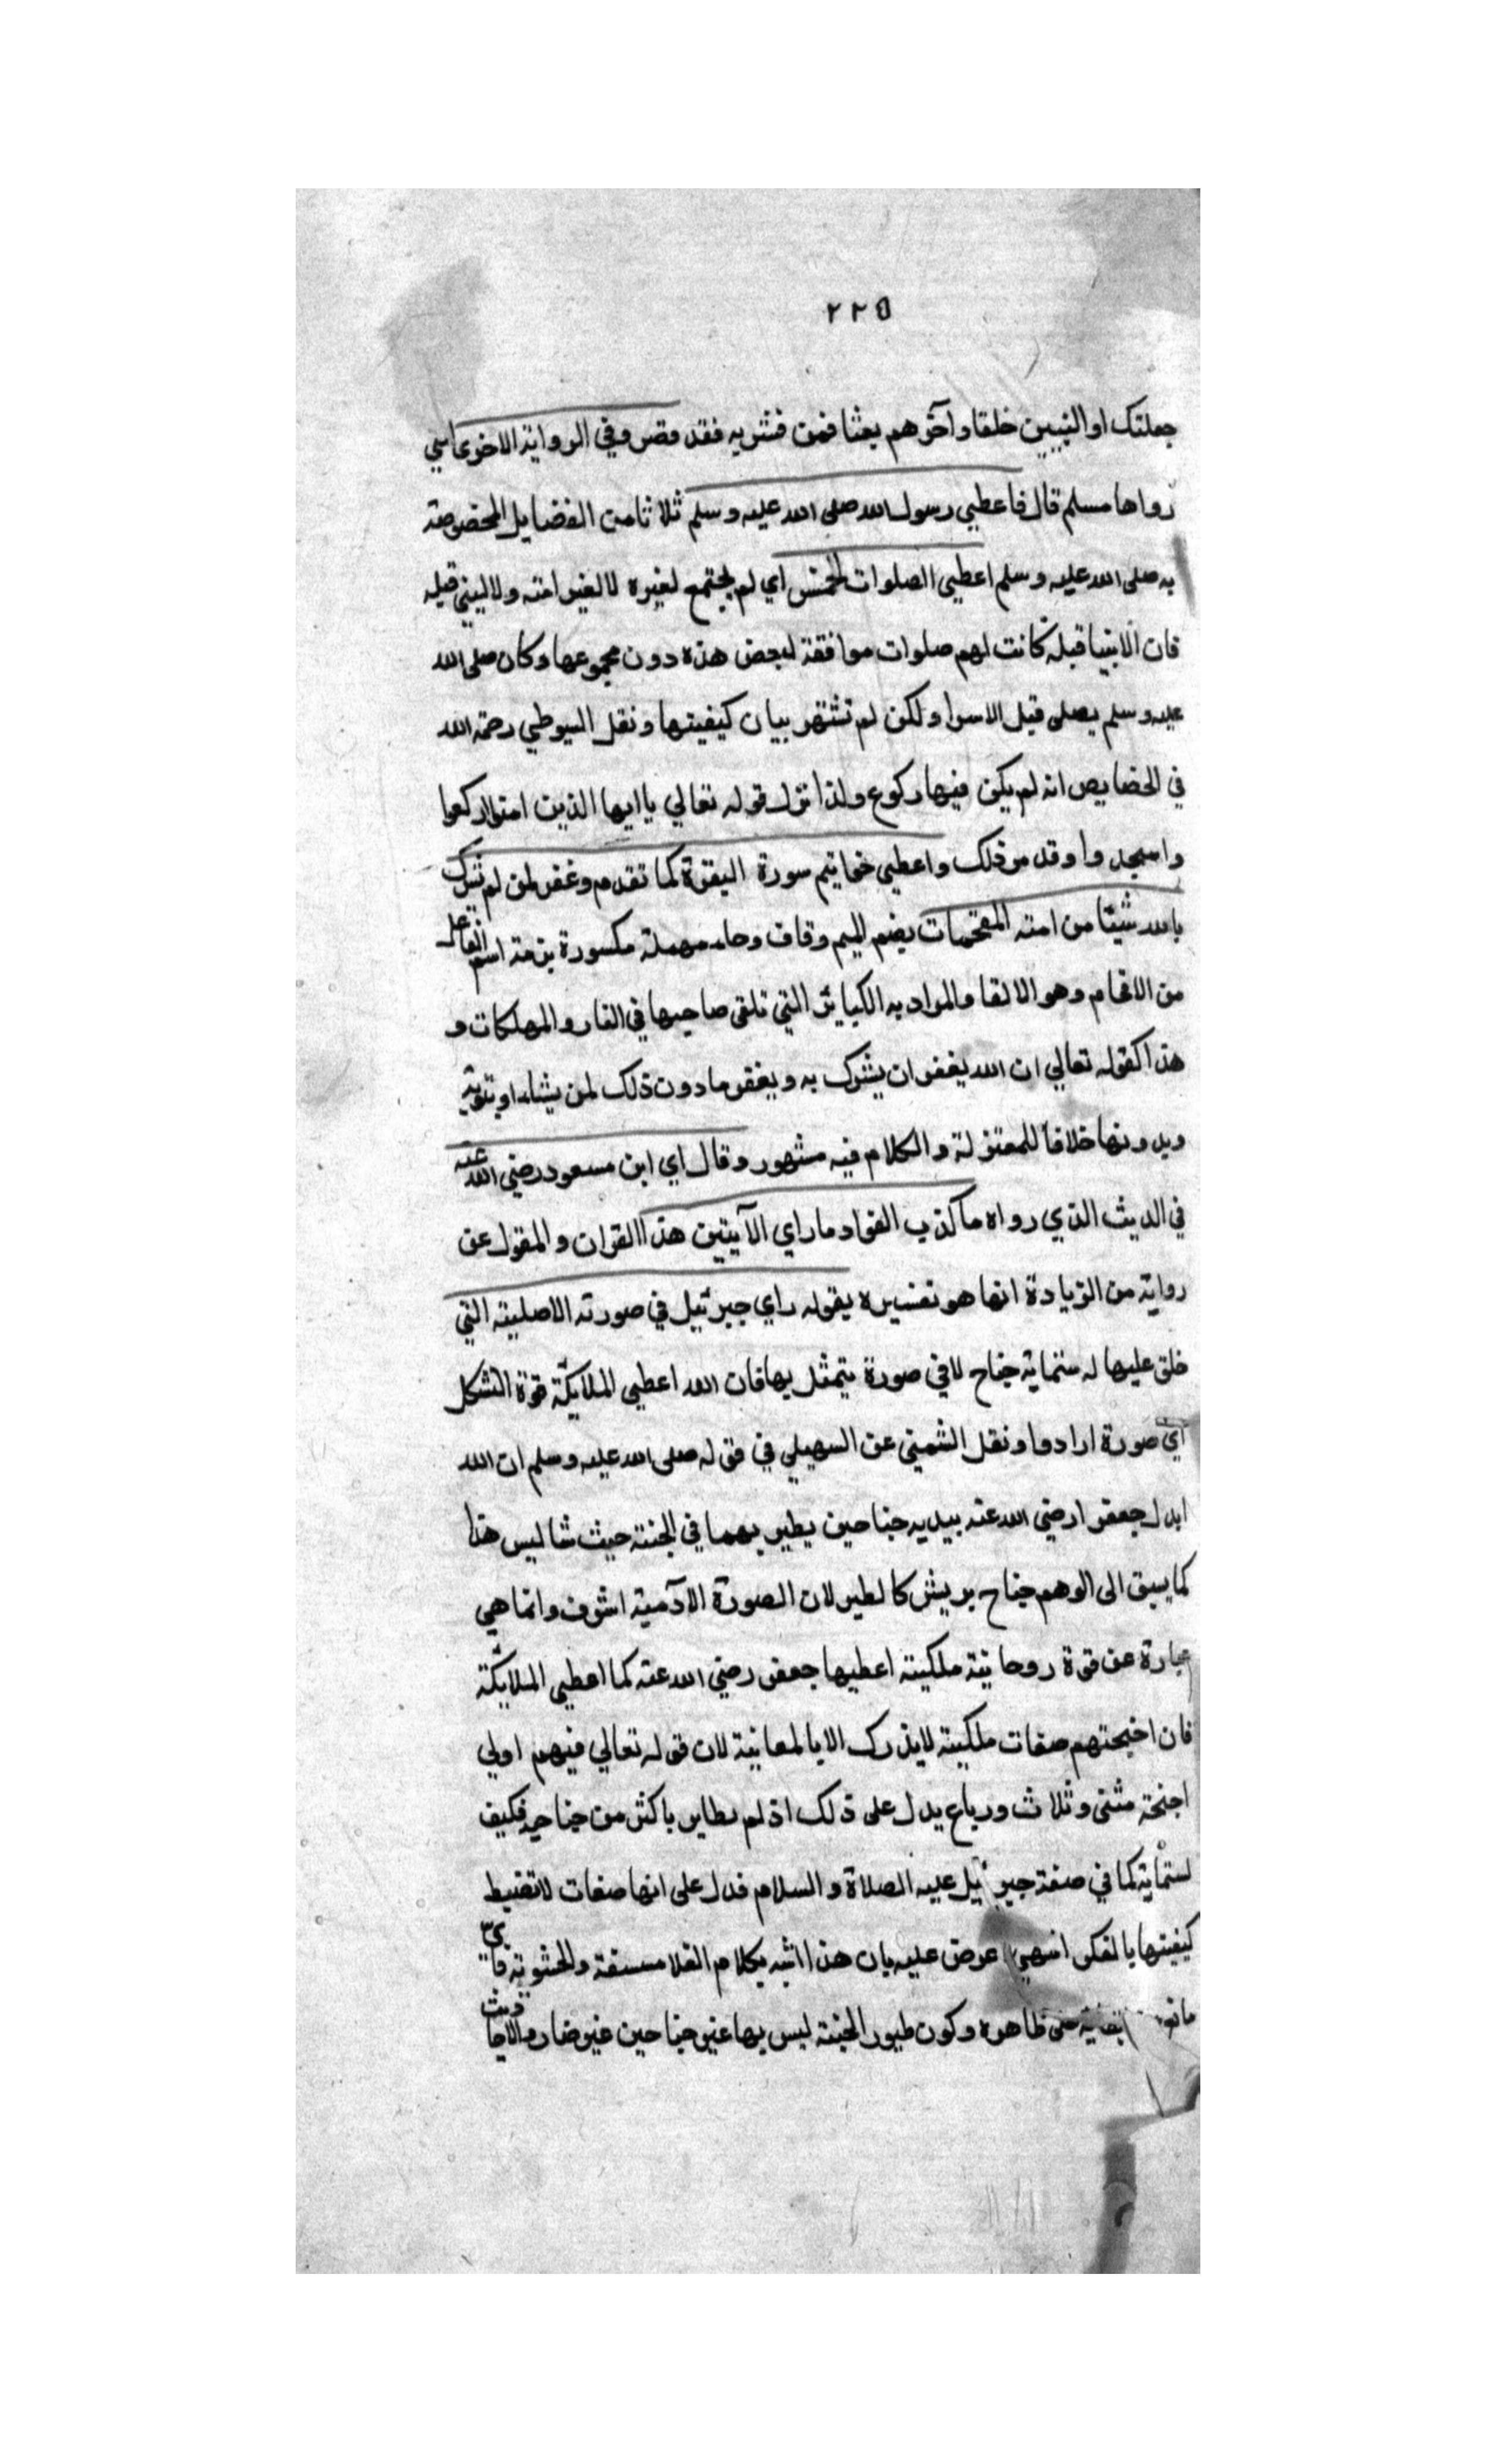 ٢٢٥
جعلتك اول النبيين خلقا وآخرهم بعثا فمن فسر به فقد قصر وفي الرواية الاخرى التي
رواها مسلم قال فاعطي رسول الله صلى الله عليه وسلم ثلاثا من الفضايل المخصوصة
به صلى الله عليه وسلم اعطي الصلوات الخمس اي لم يجتمع لغيره لا لغير امته ولا لنبي قبله
فان الانبيا قبله كانت لهم صلوات موافقة لبعض هذه دون مجموعها وكان صلى الله
عليه وسلم يصلي قبل الاسرا ولكن لم تشتهر بيان كيفيتها ونقل السيوطي رحمة الله
في الخصايص انه لم يكن فيها ركوع ولذا نزل قوله تعالي يا ايها الذين امنوا اركعوا
واسجدوا وقد مر ذلك واعطي خواتيم سورة البقرة كما تقدم وغفر لمن لم يشرك
بالله شيئا من امته المقحمات بضم الميم وقاف وحاء مهملة مكسورة بزنة اسم الفاعل
من الاقحام وهو الالقا والمراد به الكبائر التي تلقى صاحبها في النار والمهلكات و
هذا كقوله تعالي ان الله يغفر ان يشرك به ويغفر ما دون ذلك لمن يشاء او بتوبة
وبدونها خلافا للمعتزلة والكلام فيه مشهور وقال اي ابن مسعود رضي الله عنه
في الديث الذي رواه ما كذب الفواد ما راي الآيتين هذا القران والمقول عن
رواية من الزيادة انما هو تفسيره بقوله راي جبرئيل في صورته الاصلية التي
خلق عليها له ستماية جناح لا في صورة يتمثل بها فان الله اعطي الملايكة قوة التشكل
اي صورة ارادوا ونقل الشمني عن السهيلي في قوله صلى الله عليه وسلم ان الله
ابدل جعفرا رضي الله عنه بيديه جناحين يطير بهما في الجنة حيث شا ليس هذا
كما يسبق الى الوهم جناح بريش كالطير لان الصورة الآدمية اشرف وانما هي
عبارة عن قوة روحانية ملكية اعطيها جعفر رضي الله عنه كما اعطي الملايكة
فان اجنحتهم صفات ملكية لا يدرك الا بالمعاينة لان قوله تعالي فيهم اولي
اجنحة مثنى وثلاث ورباع يدل على ذلك اذ لم يطاير باكثر من جناحين فكيف
لستماية كما في صفة جبرئيل عليه الصلاة والسلام فدل على انها صفات لا تضبط
كيفيتها بالفكر انتهى عرض عليه بان هذا اشبه بكلام الفلاسفة والحشوية
ظاهره وكون طيور الجنة ليس بها غير جناحين غير ضار والاحاديث